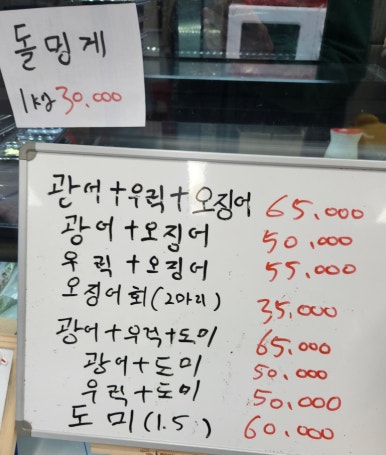 돌멍게
1kg 30.000
광어+우럭+오징어 65.000
광어+오징어 50.000
우럭+오징어 55.000
오징어회(2마리) 35.000
광어+우럭+도미 65.000
광어+도미 50.000
우럭+도미 50.000
도미(1.5) 60.000